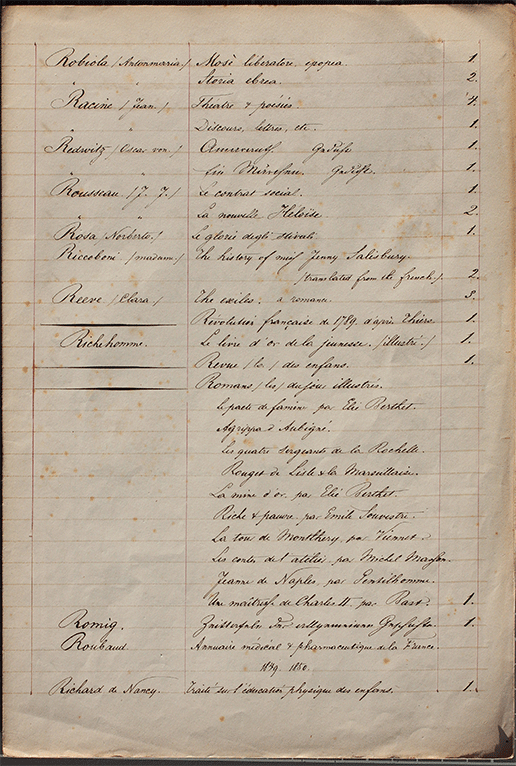 Robiola /Antonmaria./ Mosè liberatore, epopea. 1.
" " Storia ebrea. 2.
Racine /Jean./ Theatre & poésies. 4.
" " Discours, lettres, etc. 1.
Redwitz /Oscar von./ Amaranth. Gedicht. 1.
" " Ein Märchen. Gedicht. 1.
Rousseau /J. J./ Le contrat social. 1.
" " La nouvelle Heloïse. 2.
Rosa /Norberto./ Le glorie degli stivali. 1.
Riccoboni /madam./ The history of miss Jenny Salisbury.
/translated from the french./ 2.
Reeve /Clara./ The exiles: a romance. 3.
Révolution française de 1789. d'après Thiers. 1.
Richehomme. Le livre d'or de la jeunesse. /illustré./ 1.
Revue /la/ des enfans. 1.
Romans /les/ du jour illustrés.
Le pacte de famine par Elié Berthet.
Agrippa d'Aubigné.
Les quatre sergeants de la Rochelle.
Rouget de Lisle & la Marseillaise.
La mine d'or par Elié Berthet.
Riche & pauvre par Emile Souvestre.
La tour de Montlhery, par Viennet.
Les contes de l'atelier par Michel Masson.
Jeanne de Naples, par Gentilhomme.
Une maîtresse de Charles II. par Bast. 1.
Romig. Zeitschrift der allgemeinen Geschichte. 1.
Roubaud Annuaire médical & pharmaceutique de la France.
1849. 1850.
Richard de Nancy. Traité sur l'éducation physique des enfans. 1.